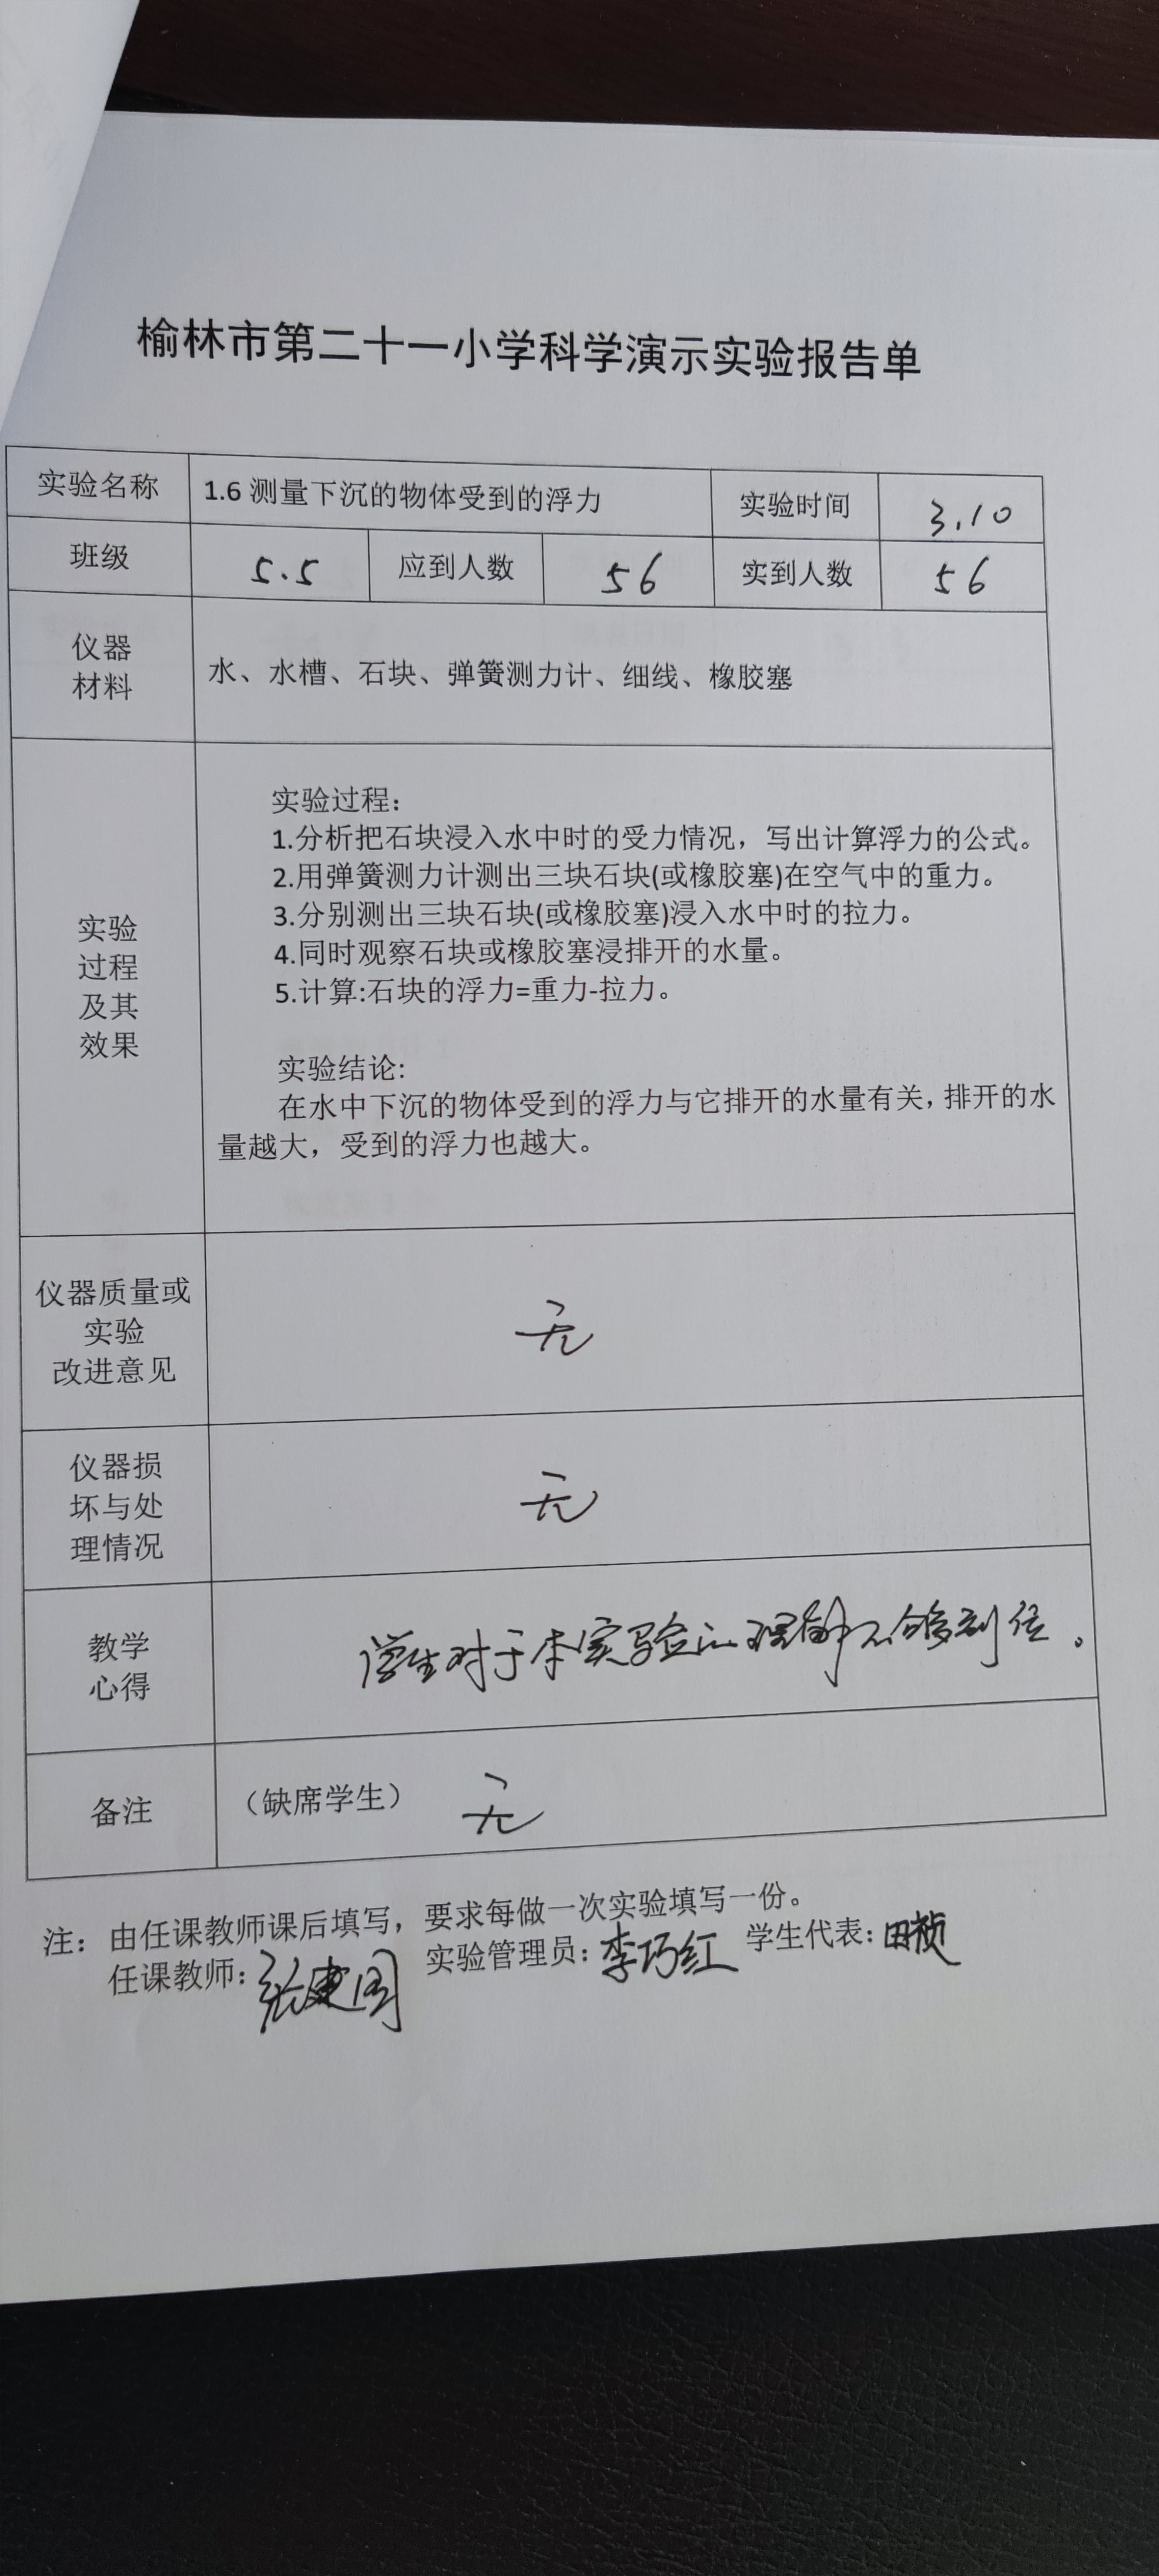 榆林市第二十一小学科学演示实验报告单
实验名称 1.6 测量下沉的物体受到的浮力 实验时间 3.10
班级 5.5 应到人数 56 实到人数 56
仪器
材料
水、水槽、石块、弹簧测力计、细线、橡胶塞
实验
过程
及其
效果
实验过程：
1.分析把石块浸入水中时的受力情况，写出计算浮力的公式。
2.用弹簧测力计测出三块石块(或橡胶塞)在空气中的重力。
3.分别测出三块石块(或橡胶塞)浸入水中时的拉力。
4.同时观察石块或橡胶塞浸排开的水量。
5.计算:石块的浮力=重力-拉力。
实验结论:
在水中下沉的物体受到的浮力与它排开的水量有关，排开的水
量越大，受到的浮力也越大。
仪器质量或
实验
改进意见
无
仪器损
坏与处
理情况
无
教学
心得
学生对于本实验的理解不够到位。
备注 （缺席学生） 无
注：由任课教师课后填写，要求每做一次实验填写一份。
任课教师：张建国 实验管理员：李巧红 学生代表：田祯